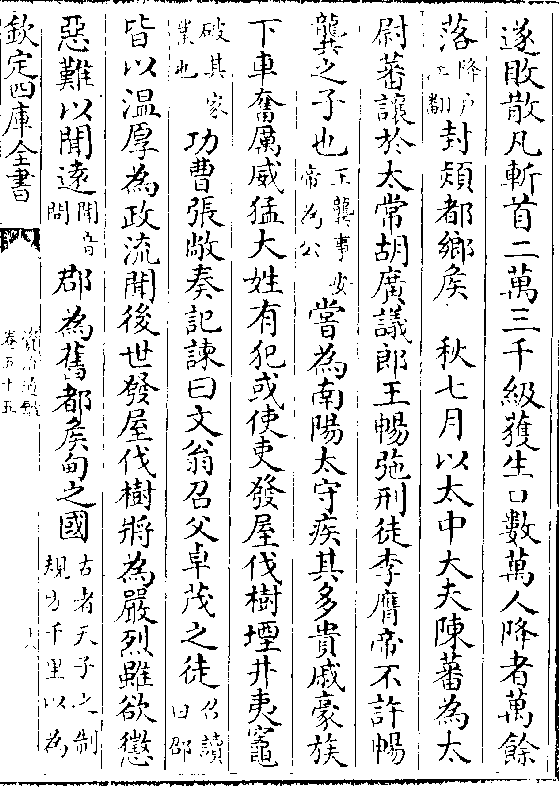 遂敗散凡斬首二萬三千級獲生口數萬人降者萬餘
落降戶江翻封熲都鄉矦　秋七月以太中大夫陳蕃為太
尉蕃讓於太常胡廣議郎王暢弛刑徒李膺帝不許暢
龔之子也王龔事安帝為公嘗為南陽太守疾其多貴戚豪族
下車奮厲威猛大姓有犯或使吏發屋伐樹堙井夷竈
破其家業也功曹張敞奏記諫曰文翁召父卓茂之徒召讀曰邵
皆以温厚為政流聞後世發屋伐樹將為嚴烈雖欲懲
惡難以聞遠聞音問郡為舊都矦甸之國古者天子之制規方千里以為
欽定四庫全書
資治通鑑
卷五十五
八